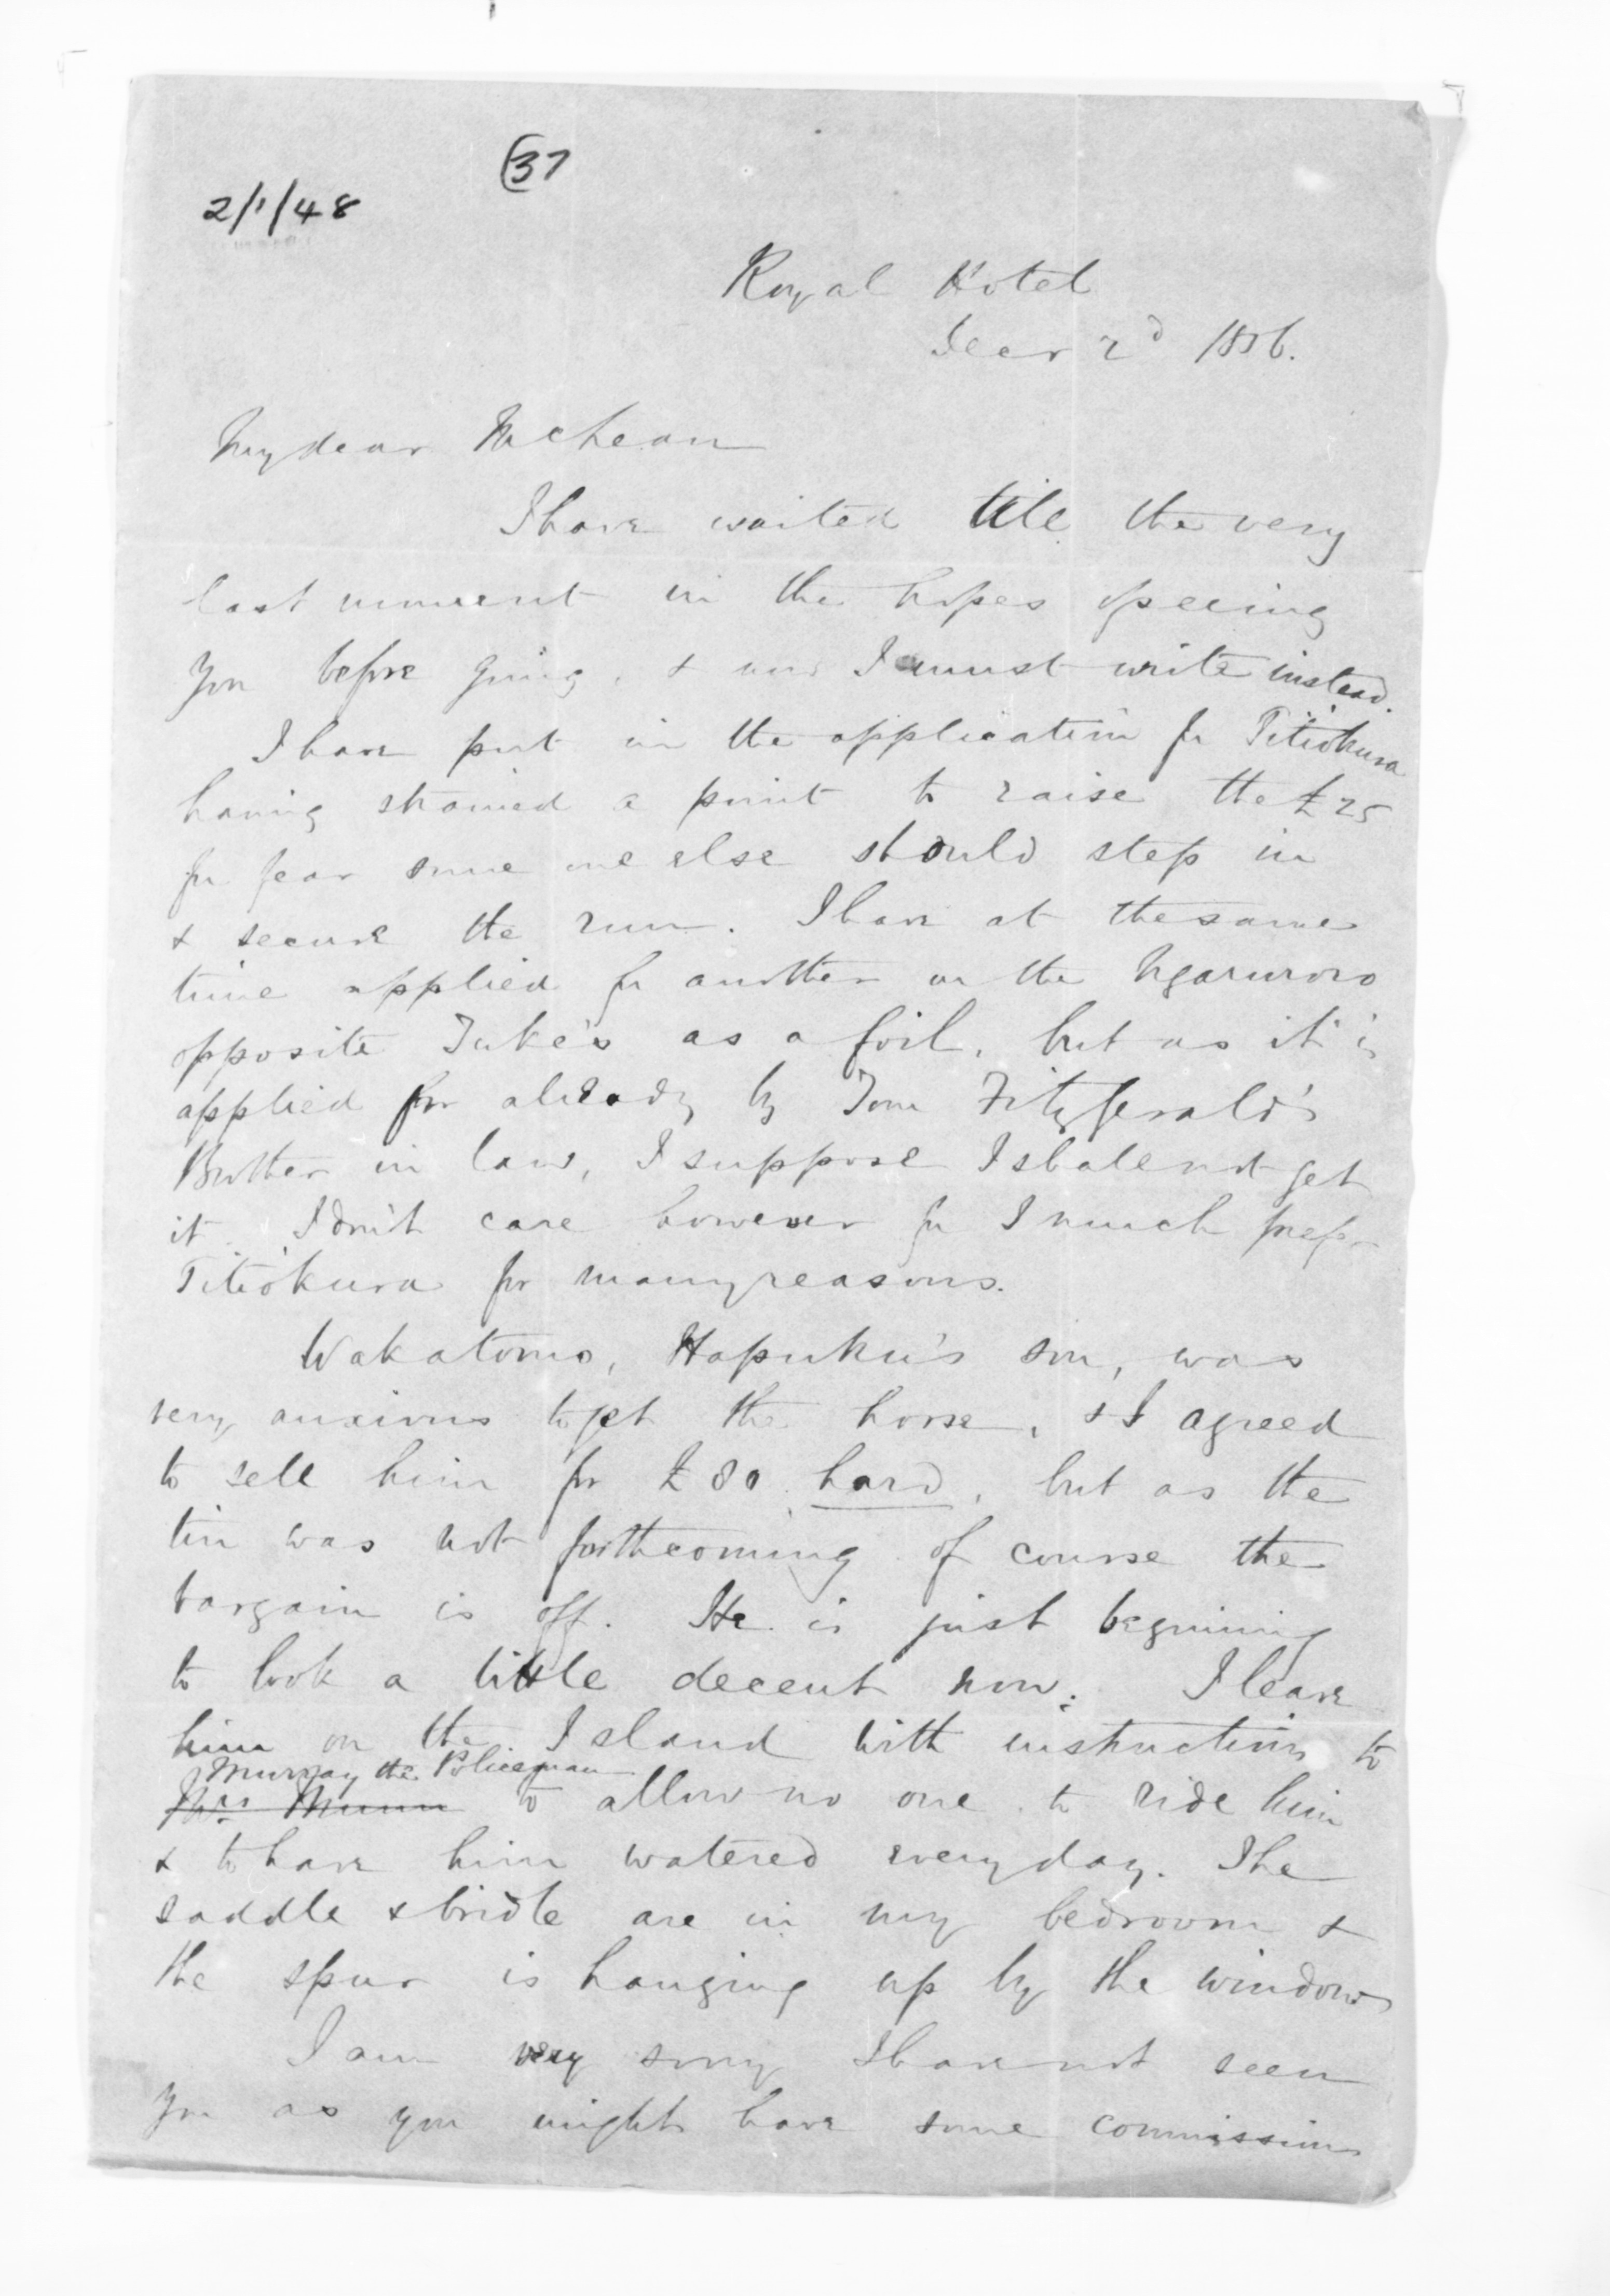 37
2/1/48
Royal Hotel
Decr 2d 1856.
My dear McLean
I have waited till the very
last moment in the hopes of seeing
you before going, & now I must write instead.
I have put in the application for Titiokura
having strained a point to raise the £25
for fear some one else should step in
& secure the run. I have at the same
time applied for another on the Ngaruroro
opposite Tuke's as a foil, but as it is
applied for already by Tom Fitzgerald's
Brother in law, I suppose I shall not get
it. I don't care however for I much prefer
Titiokura for many reasons.
Wakatomo, Hapuku's son, was
very anxious to get the horse, & I agreed
to sell him for £80 hard, but as the
tin was not forthcoming of course the
bargain is off. He is just beginning
to look a little decent now. I leave
him on the Island with instructions to
Murray the Policeman
Mrs Munn to allow no one to ride him
& to have him watered every day. The
saddle & bridle are in my bedroom &
the spur is hanging up by the window
I am very sorry I have not seen
you as you might have some commissions